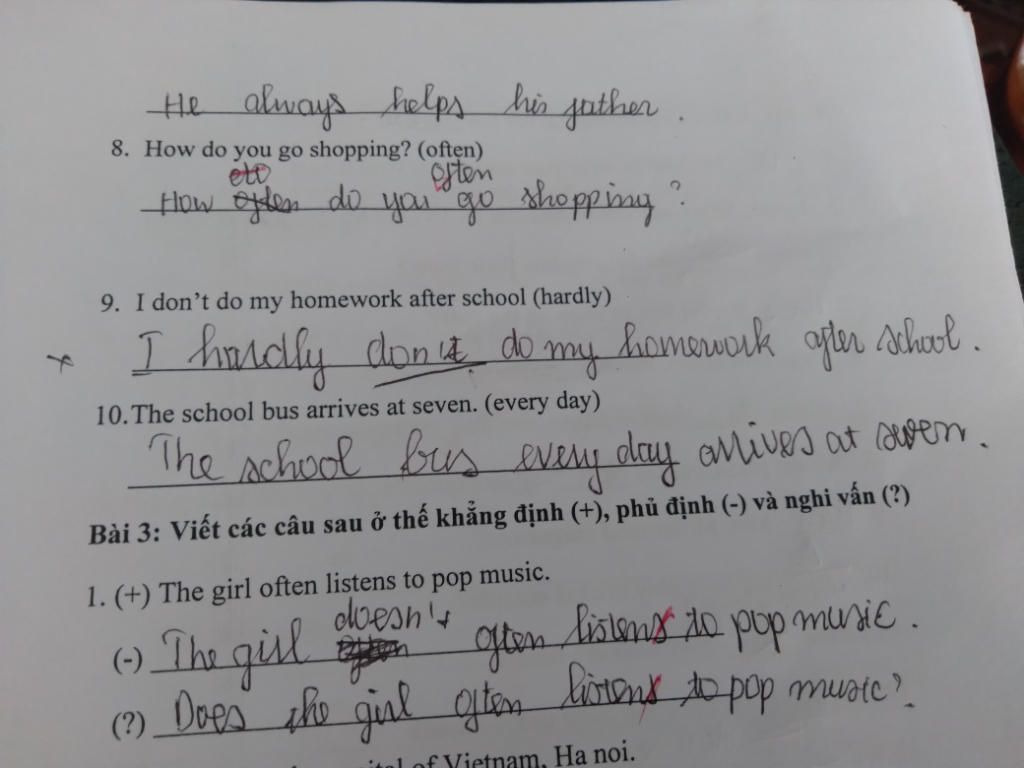 He always helps his father.
8. How do you go shopping? (often)
often
How often do you go shopping?
9. I don't do my homework after school (hardly)
I hardly don't do my homework after school.
10. The school bus arrives at seven. (every day)
The school bus every day arrives at seven.
Bài 3: Viết các câu sau ở thế khẳng định (+), phủ định (-) và nghi vấn (?)
1. (+) The girl often listens to pop music.
doesn't
(-) The girl often listens to pop music.
(?) Does the girl often listens to pop music?
of Vietnam, Ha noi.